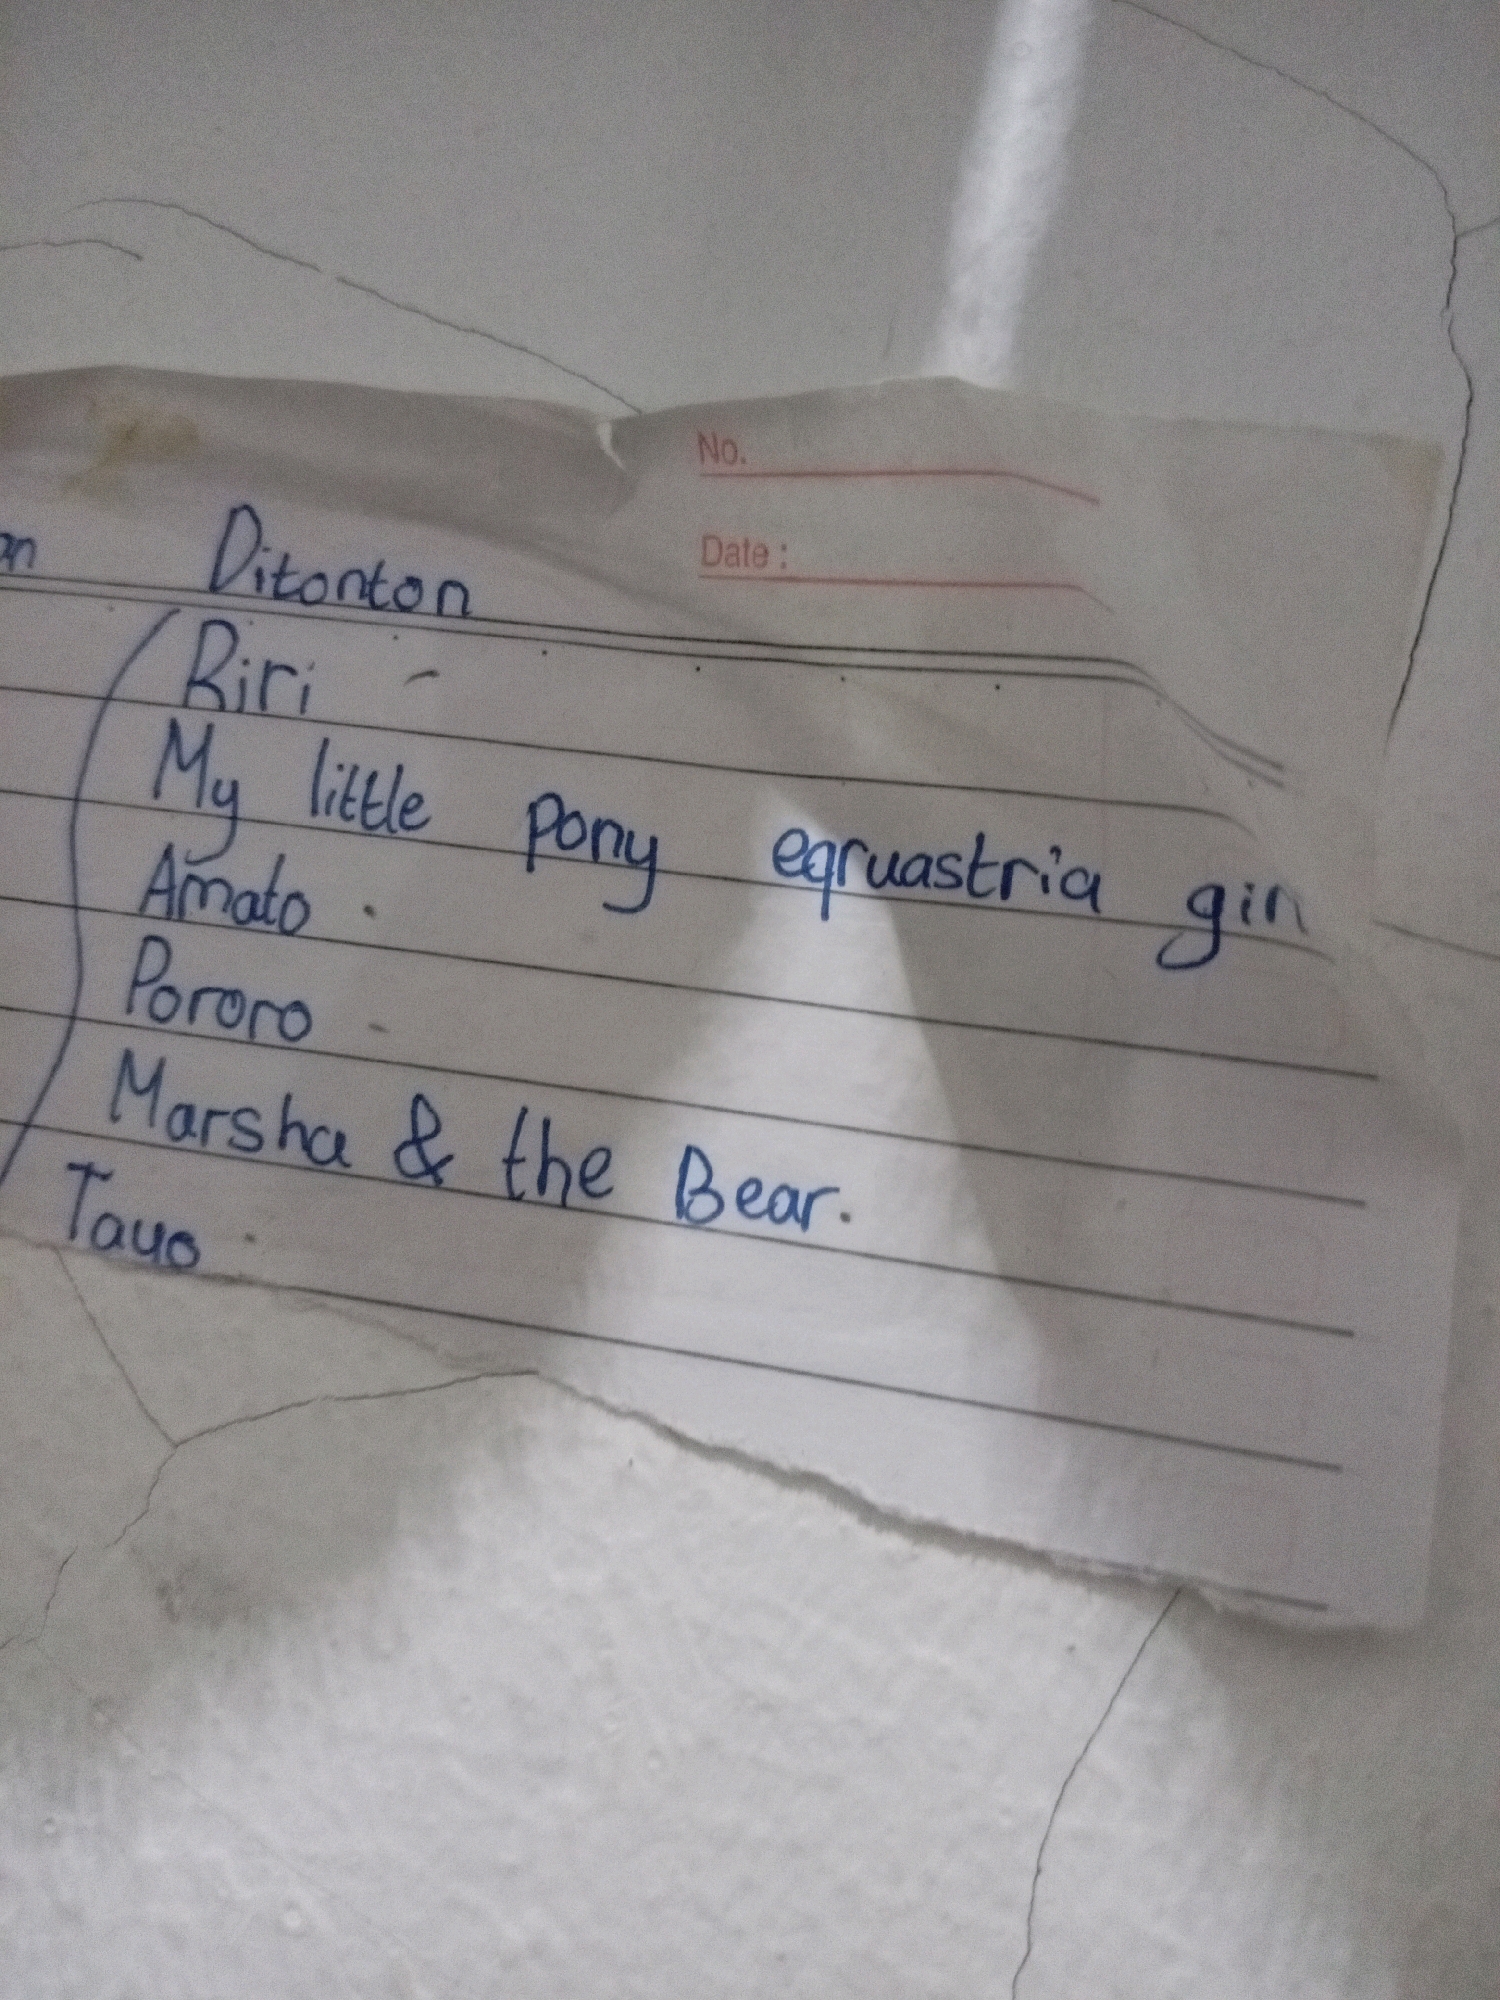 No.
Date :
an Ditonton
Riri -
My little pony eqruastria girl
Amato .
Pororo -
Marsha & the Bear.
Tayo .